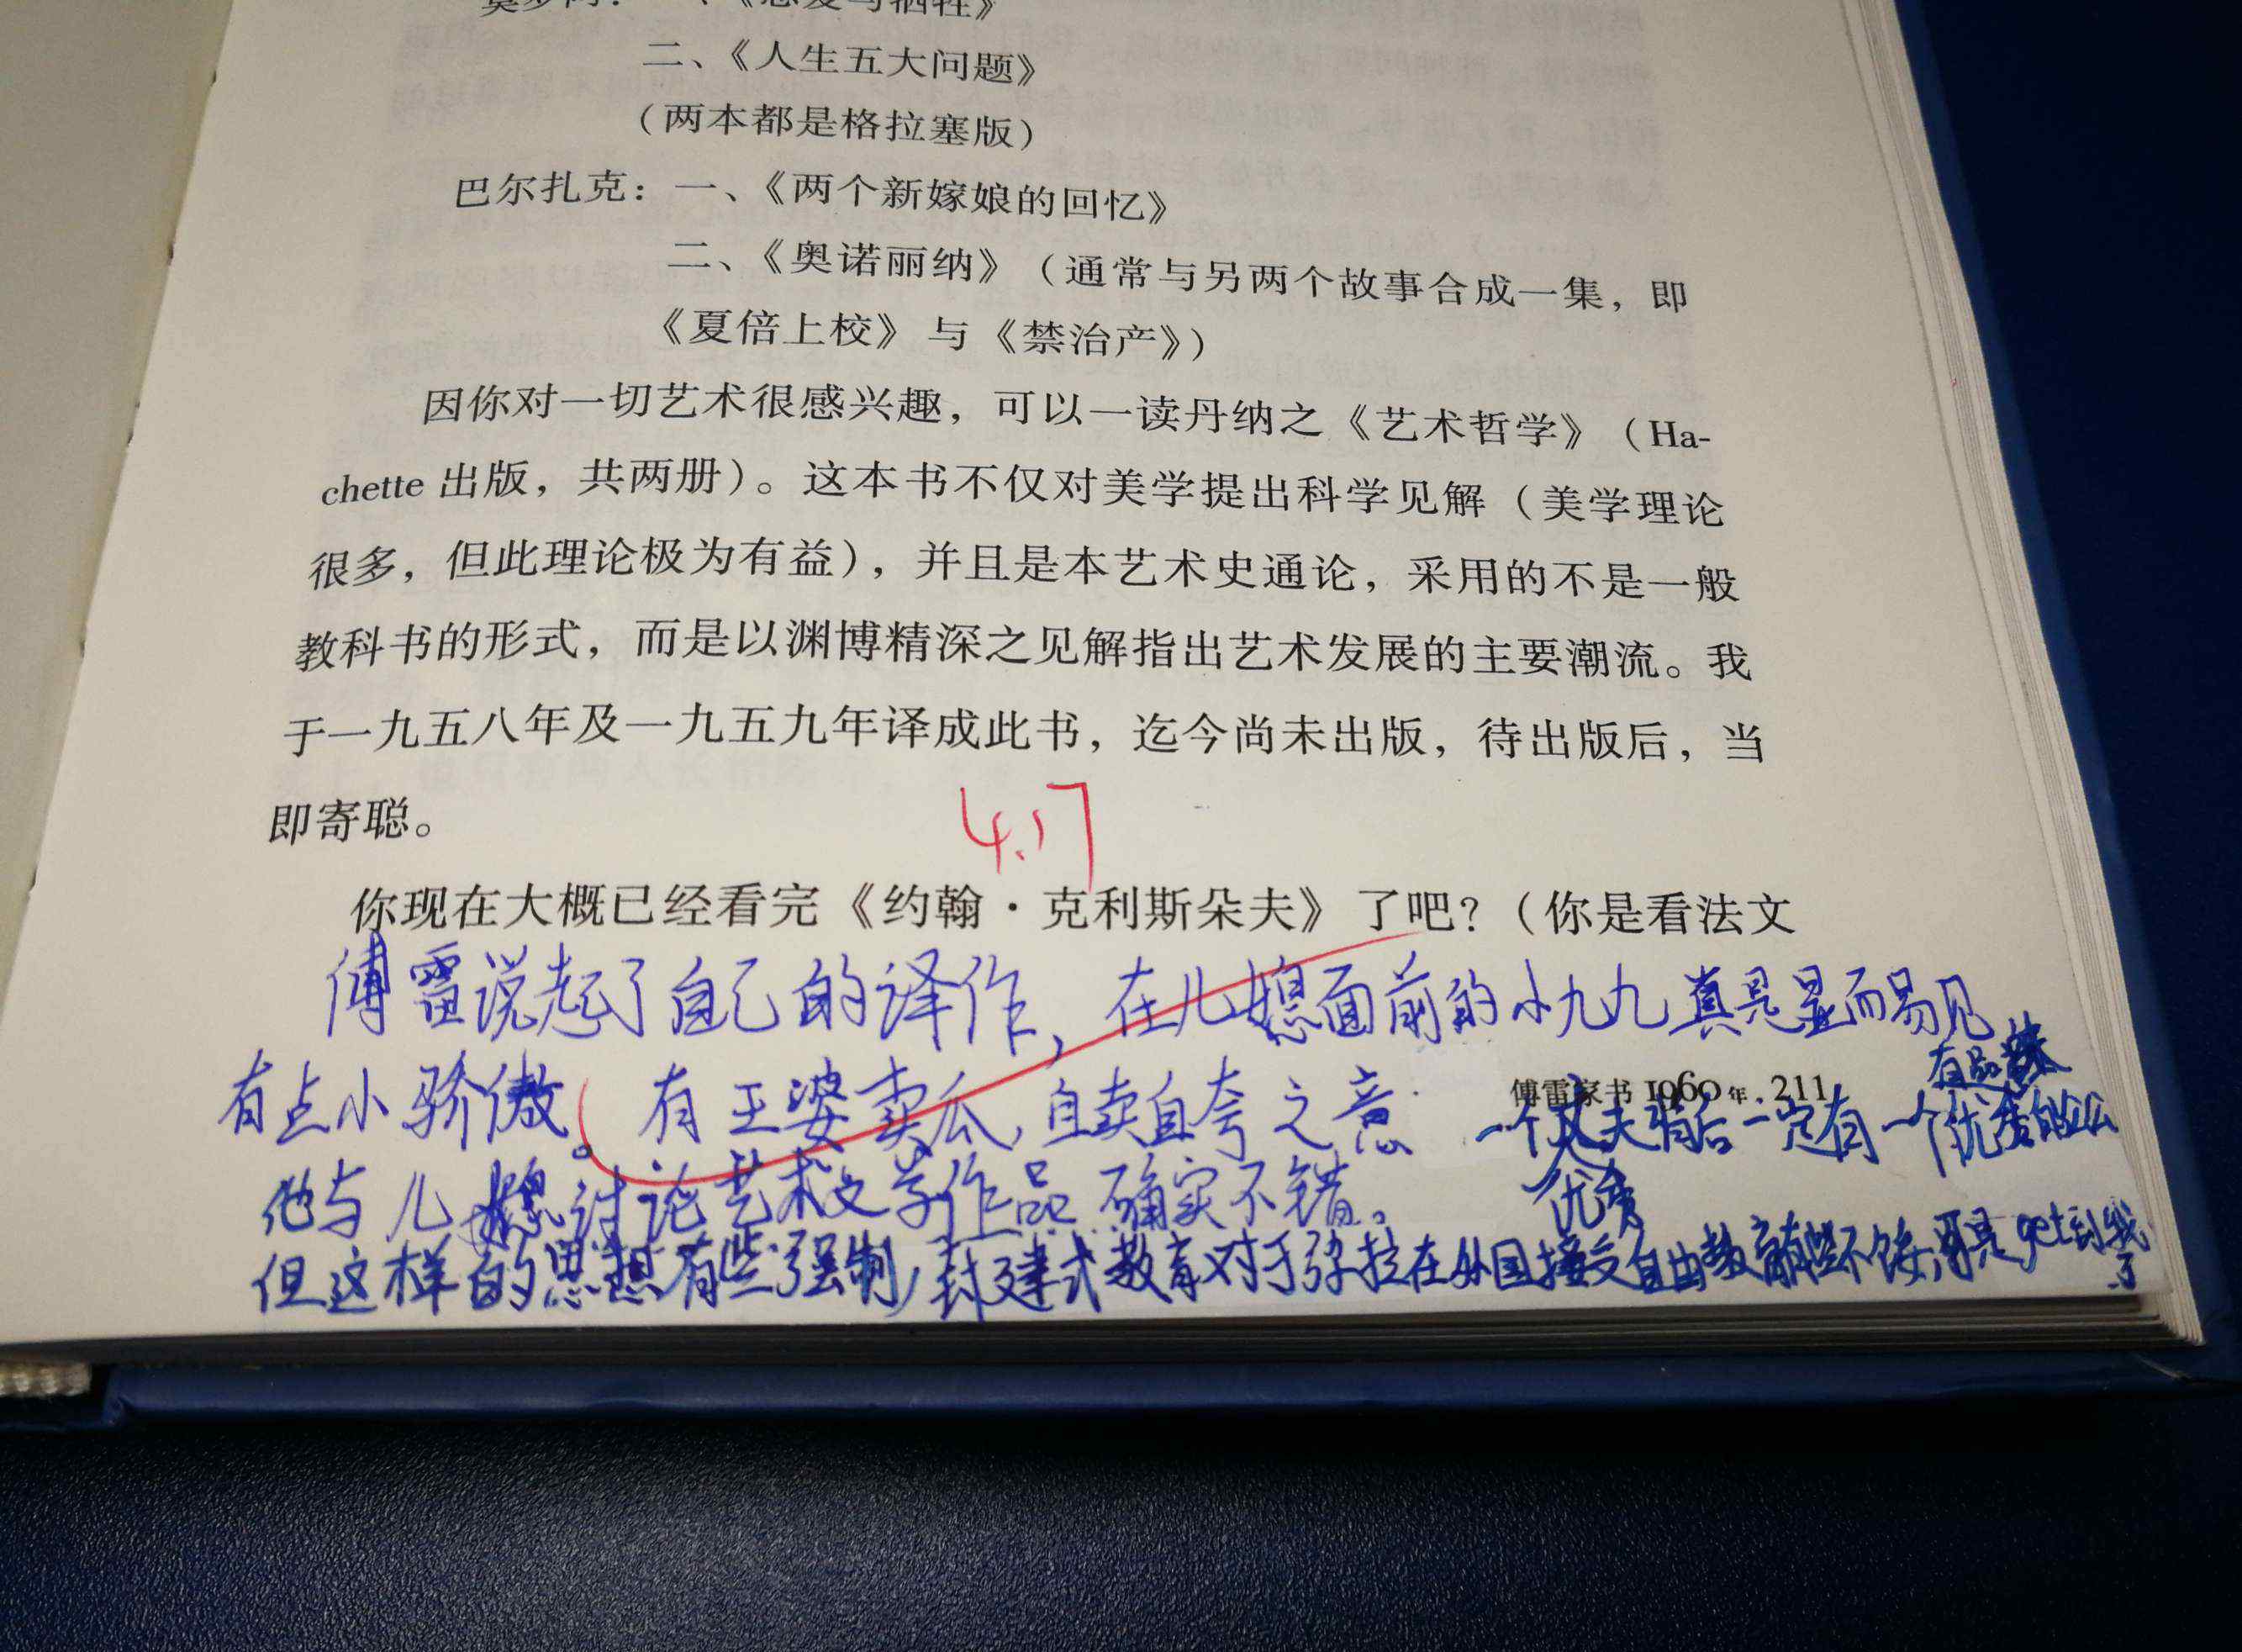 二、《人生五大问题》
（两本都是格拉塞版）
巴尔扎克：一、《两个新嫁娘的回忆》
二、《奥诺丽纳》（通常与另两个故事合成一集，即
《夏倍上校》与《禁治产》）
因你对一切艺术很感兴趣，可以一读丹纳之《艺术哲学》（Ha-
chette 出版，共两册）。这本书不仅对美学提出科学见解（美学理论
很多，但此理论极为有益），并且是本艺术史通论，采用的不是一般
教科书的形式，而是以渊博精深之见解指出艺术发展的主要潮流。我
于一九五八年及一九五九年译成此书，迄今尚未出版，待出版后，当
即寄聪。
4.17
你现在大概已经看完《约翰·克利斯朵夫》了吧？（你是看法文
傅雷说起了自己的译作，在儿媳面前的小九九真是显而易见
有点小骄傲。有王婆卖瓜，自卖自夸之意
傅雷家书 1960年. 211
有品味
一个丈夫背后一定有一个优秀的公公
优秀
他与儿媳讨论艺术文学作品确实不错。
但这样的思想有些强制，封建式教育对于弥拉在外国接受自由教育有些不妥，get到我
了